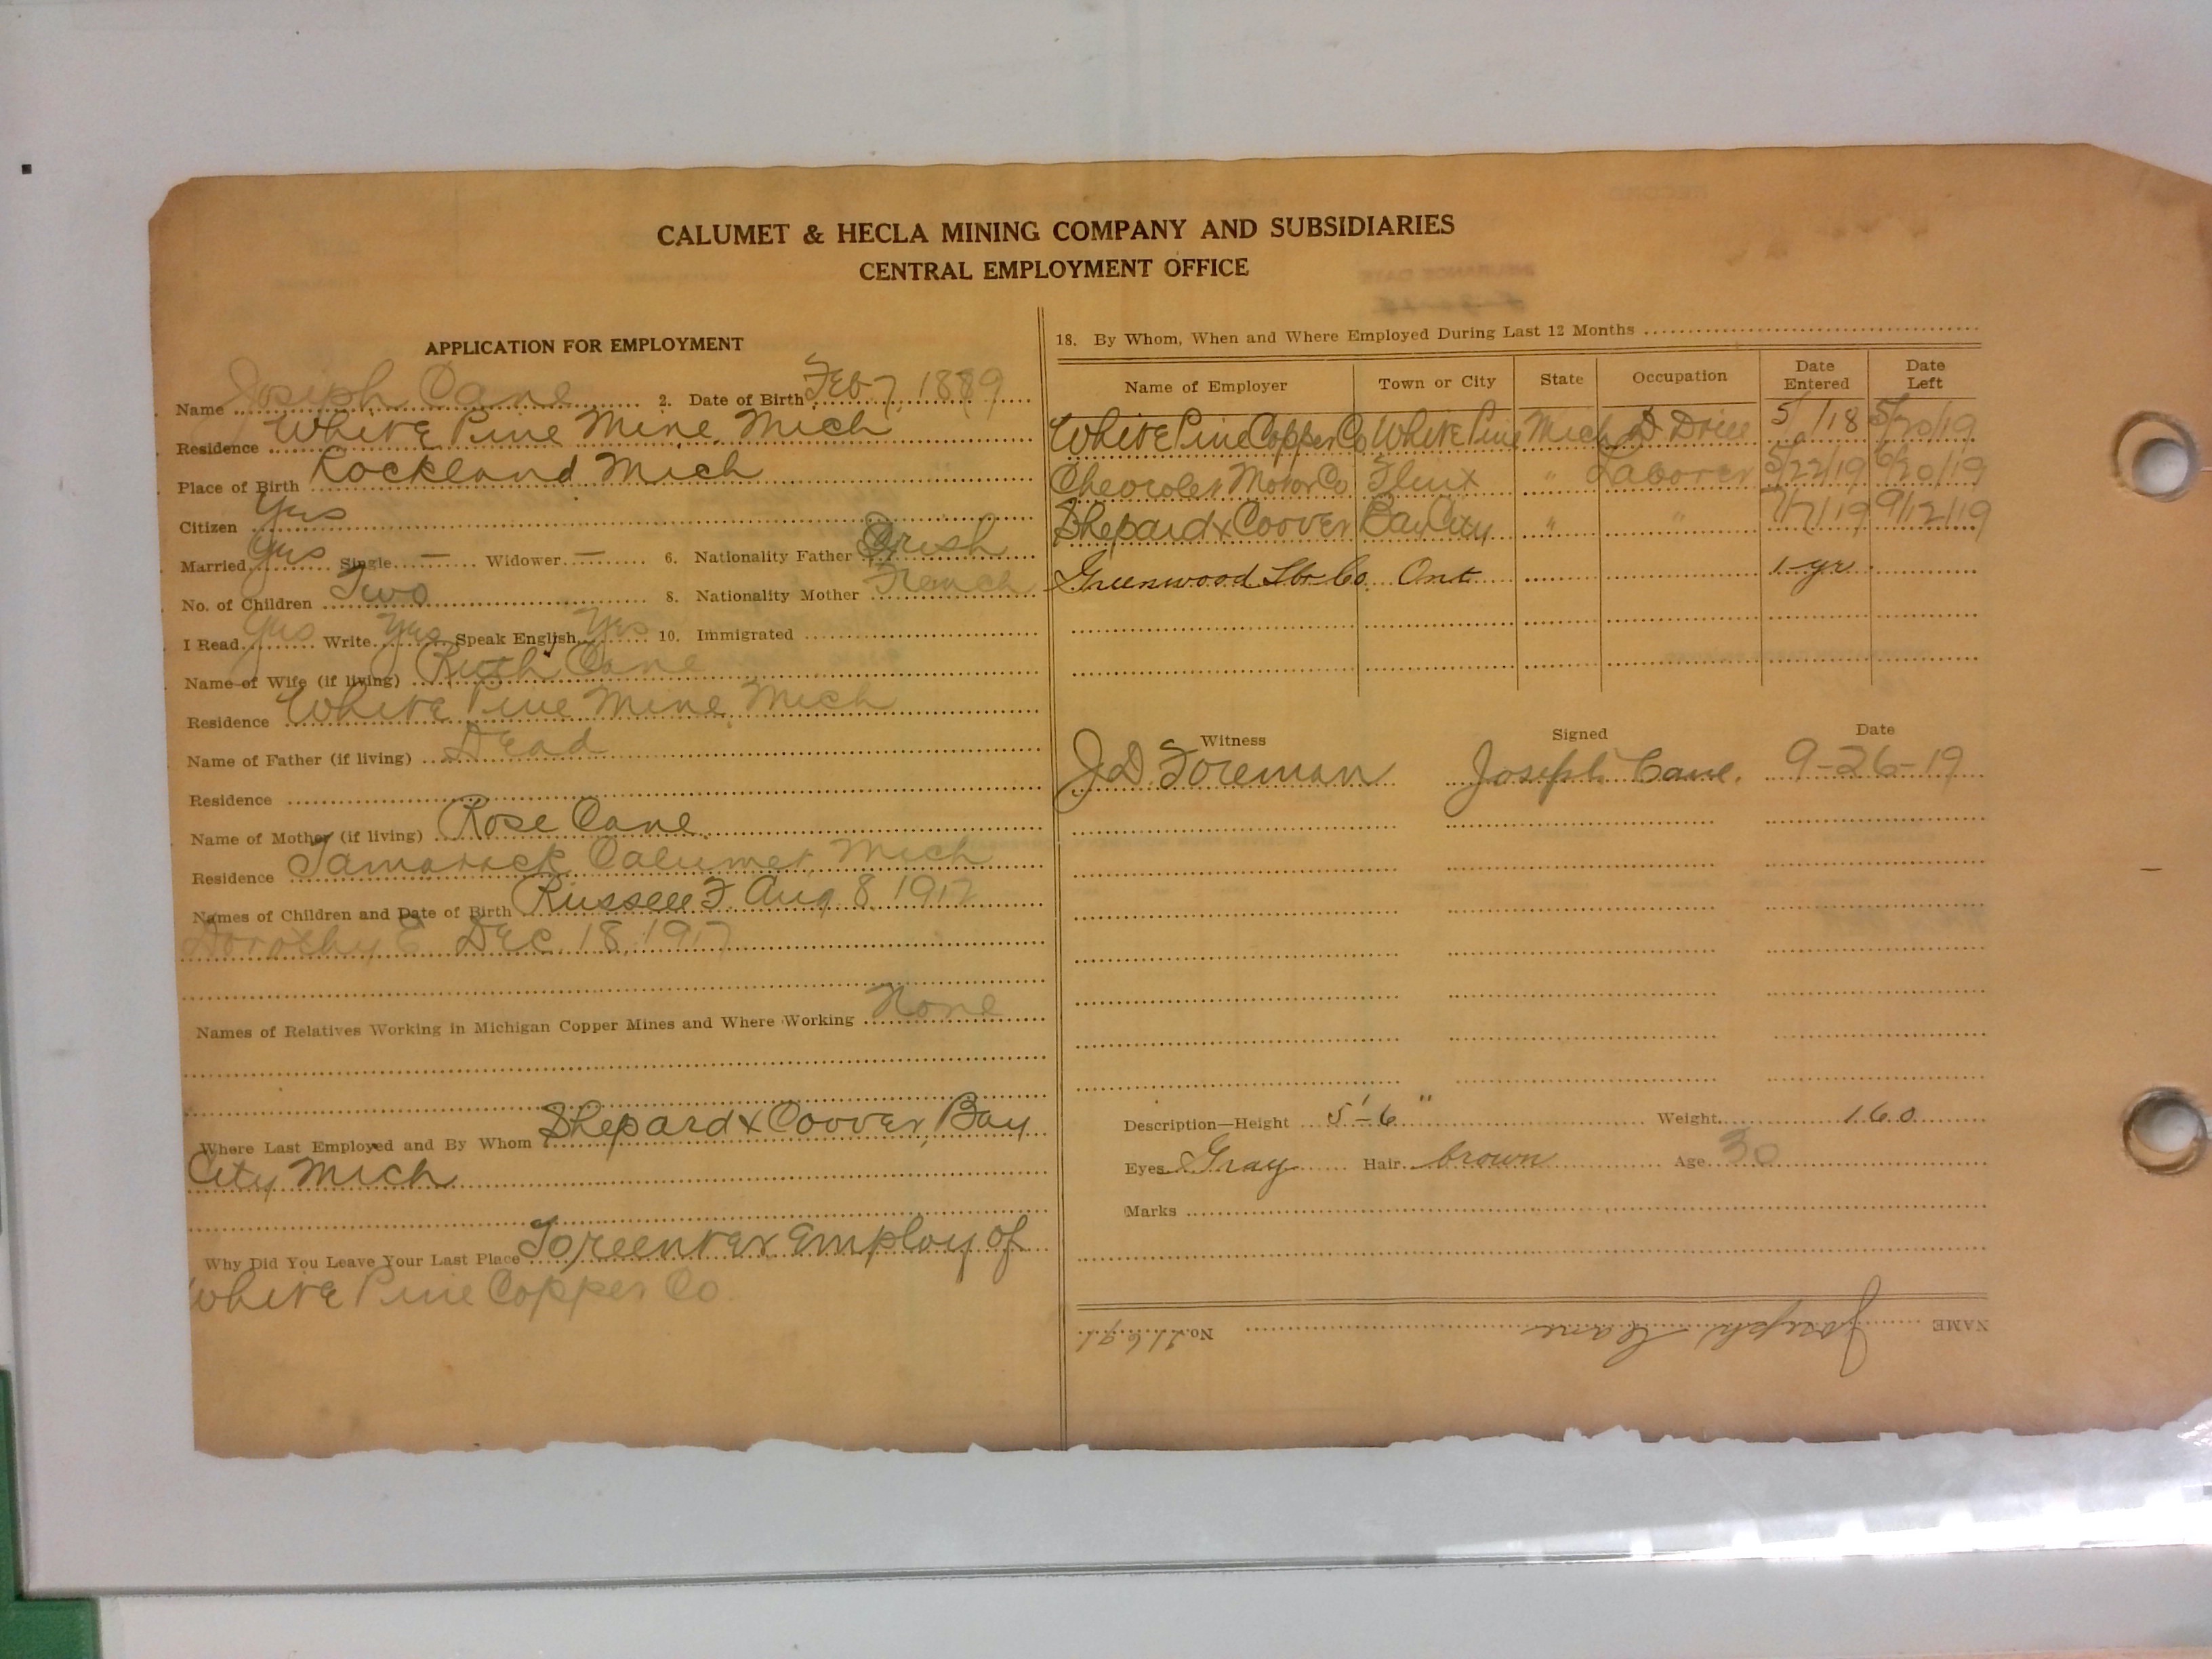 CALUMET & HECLA MINING COMPANY AND SUBSIDIARIES
CENTRAL EMPLOYMENT OFFICE
APPLICATION FOR EMPLOYMENT
Name Joseph Cane 2. Date of Birth Feb 7, 1889
Residence White Pine Mine, Mich
Place of Birth Rockland Mich
Citizen Yes
Married Yes Single — Widower — 6. Nationality Father Irish
No. of Children Two 8. Nationality Mother French
I Read Yes Write Yes Speak English Yes 10. Immigrated
Name of Wife (if living) Ruth Cane
Residence White Pine Mine, Mich
Name of Father (if living) Dead
Residence
Name of Mother (if living) Rose Cane
Residence Tamarack Calumet Mich
Names of Children and Date of Birth Russell F. Aug 8 1912
Dorothy E Dec. 18, 1917
Names of Relatives Working in Michigan Copper Mines and Where Working None
Where Last Employed and By Whom Shepard & Coover, Bay
City Mich
Why Did You Leave Your Last Place To reenter employ of
White Pine Copper Co.
18. By Whom, When and Where Employed During Last 12 Months
Name of Employer Town or City State Occupation Date Entered Date Left
White Pine Copper Co White Pine Mich D Drill 5/ /18 5/20/19
Chevrolet Motor Co Flint " Laborer 5/22/19 6/20/19
Shepard & Coover Bay City " " 7/7/19 9/12/19
Greenwood Lbr Co. Ont 1 yr
Witness Signed Date
J.D. Foreman Joseph Cane. 9-26-19
Description—Height 5'-6" Weight 160
Eyes Gray Hair brown Age 30
Marks
NAME Joseph Cane No.